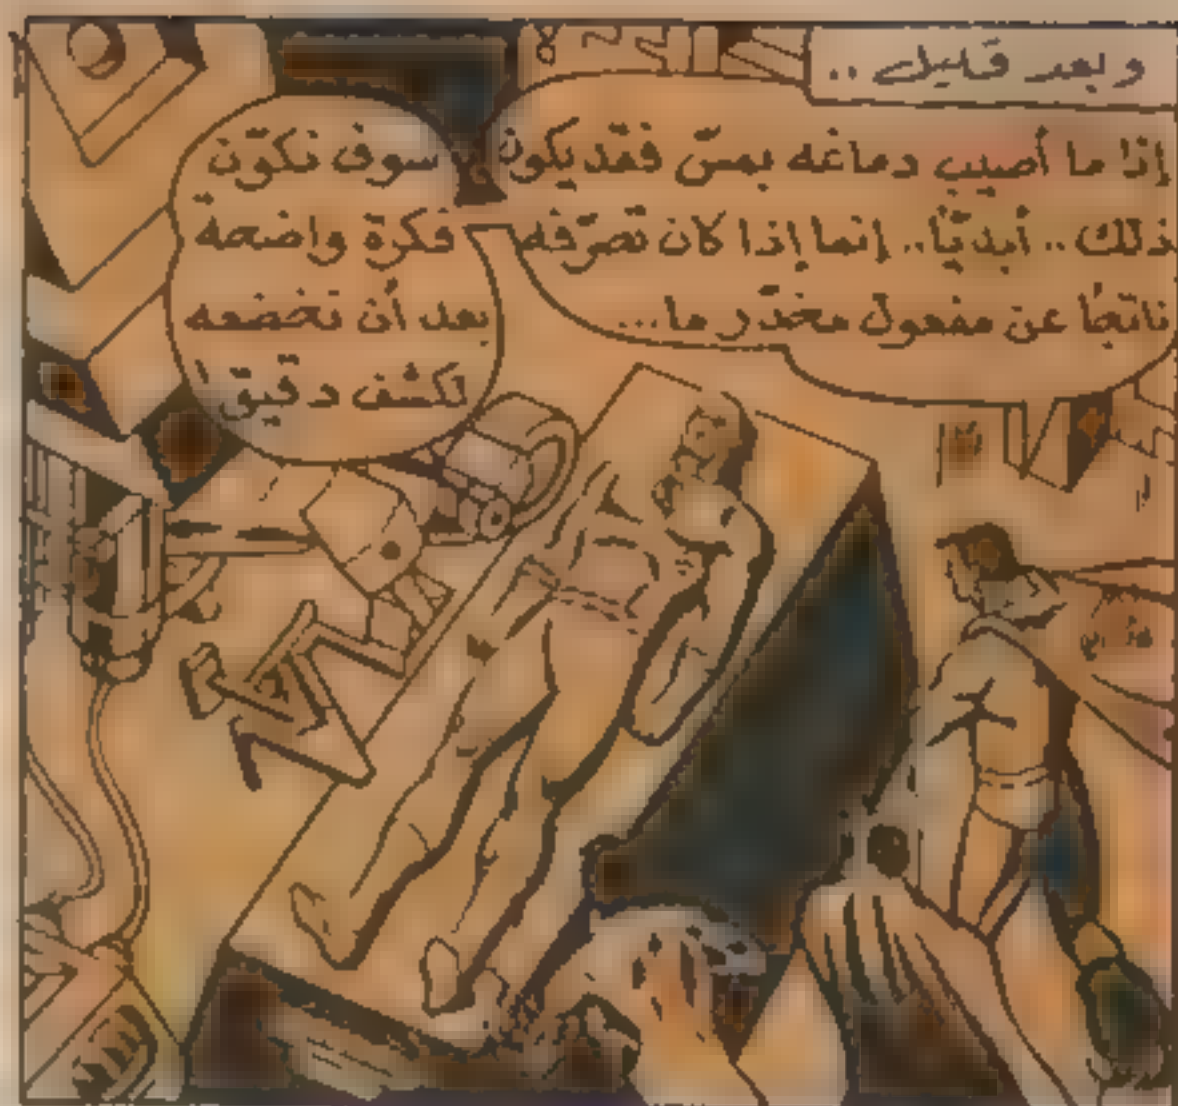 وبعد قليل ..
إذا ما أصيب دماغه بمسّ فقد يكون
ذلك .. أبديّاً .. إنما إذا كان تصرّفه
ناتجاً عن مفعول مخدّر ما...
سوف نكوّن
فكرة واضحة
بعد أن نخضعه
لكشف دقيق!